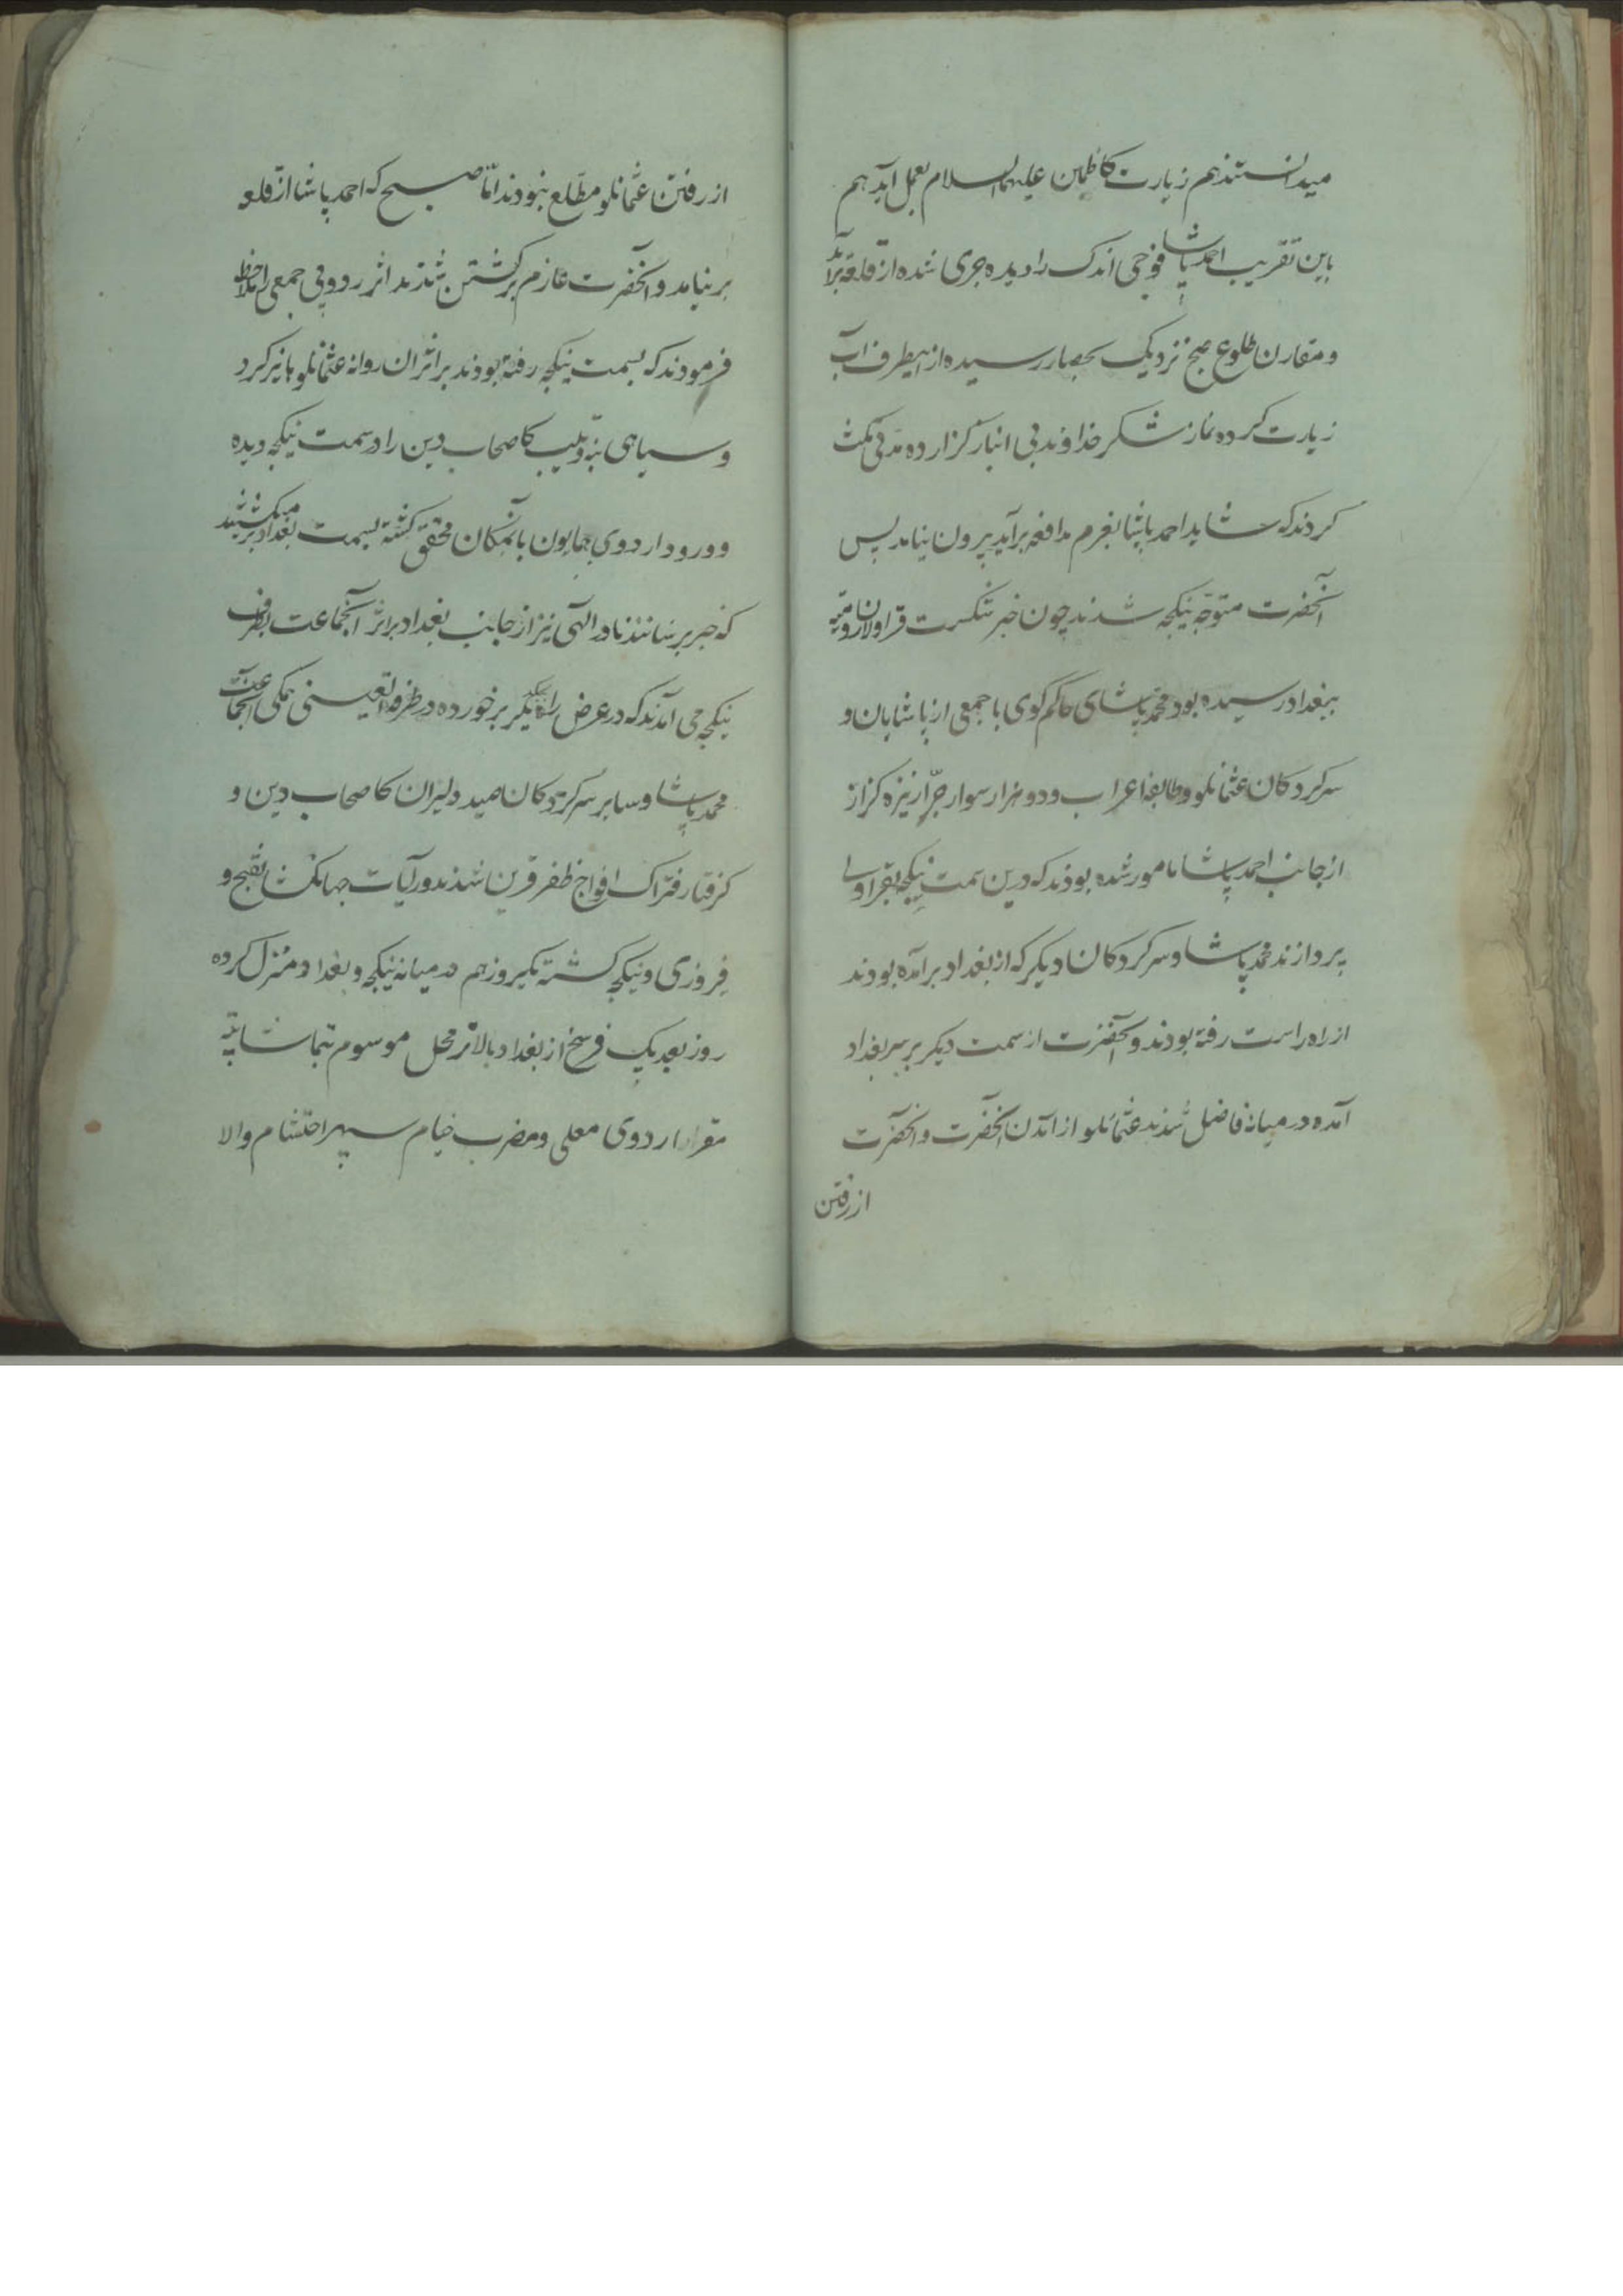 میدانستند هم زیارت کاظمین علیهما السلام بعمل آید هم
باین تقریب احمد پاشا فوجی اندک را دیده جری شده از قلعه برآید
و مقارن طلوع صبح نزدیک بحصار رسیده از اینطرف آب
زیارت کرده نماز شکر خداوند بی انباز گزارده مدتی مکث
کردند که شاید احمد پاشا بعزم مدافعه برآید بیرون نیامد پس
آنحضرت متوجه نیکجه شدند چون خبر شکست قراولان رومیه
ببغداد رسیده بود محمد پاشای حاکم کوی با جمعی از پاشایان و
سرکردکان عثمانلو و طایفه اعراب و دو هزار سوار جرّار نیزه کزار
از جانب احمد پاشا مامور شده بودند که درین سمت نیکجه بقراولی
پردازند محمد پاشا و سرکردکان دیکر که از بغداد برآمده بودند
از راه راست رفته بودند و آنحضرت از سمت دیکر بر سر بغداد
آمده در میانه فاصل شدند عثمانلو از آمدن آنحضرت و آنحضرت
از رفتن
از رفتن عثمانلو مطلع نبودند امّا صبح که احمد پاشا از قلعه
بر نیامد و آنحضرت عازم برگشتن شدند اثر رد و پی جمعی را ملاحظه
فرمودند که بسمت نیکجه رفته بودند بر اثر ان روانه عثمانلوها نیز کرد
و سیاهی بنه و تیپ کاصحاب دین را در سمت نیکجه دیده
و ورود اردوی همایون بآنمکان محقق کشته بسمت بغداد بر میکشتند
که خبر برسانند نادر الهی نیز از جانب بغداد بر اثر آنجماعت بطرف
نیکجه می آمدند که در عرض راه بیکدیگر برخورده در طرفة العینی همکی آنجماعت
محمد پاشا و سایر سرکردکان صید دلیران کاصحاب دین و
کرفتار فتراک افواج ظفر قرین شدند و رایات جهانکشا بفتح و
فیروزی و نیکجه کشته یکروز هم در میانه نیکجه و بغداد منزل کرده
روز بعد یک فرسخ از بغداد بالاتر محل موسوم بتماشا تپه
مقر اردوی معلی و مضرب خیام سپهر احتشام والا